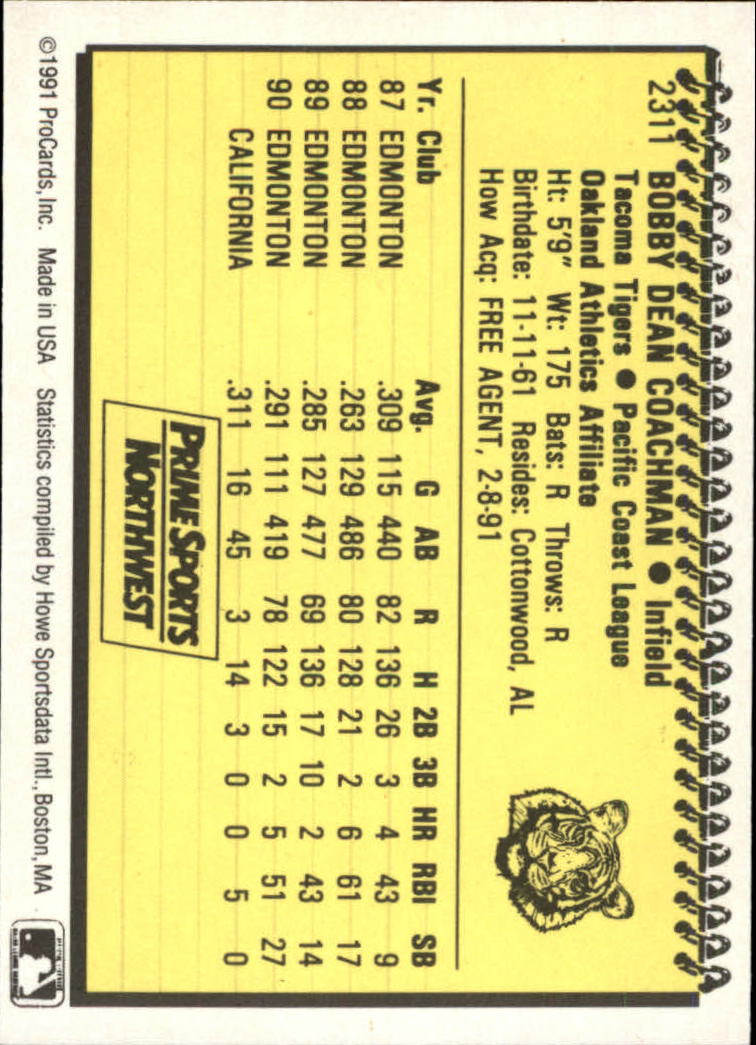 2311 BOBBY DEAN COACHMAN ● Infield
Tacoma Tigers ● Pacific Coast League
Oakland Athletics Affiliate
Ht: 5'9" Wt: 175 Bats: R Throws: R
Birthdate: 11-11-61 Resides: Cottonwood, AL
How Acq: FREE AGENT, 2-8-91
Yr. Club Avg. G AB R H 2B 3B HR RBI SB
87 EDMONTON .309 115 440 82 136 26 3 4 43 9
88 EDMONTON .263 129 486 80 128 21 2 6 61 17
89 EDMONTON .285 127 477 69 136 17 10 2 43 14
90 EDMONTON .291 111 419 78 122 15 2 5 51 27
CALIFORNIA .311 16 45 3 14 3 0 0 5 0
PRIME SPORTS
NORTHWEST
©1991 ProCards, Inc. Made in USA Statistics compiled by Howe Sportsdata Intl., Boston, MA